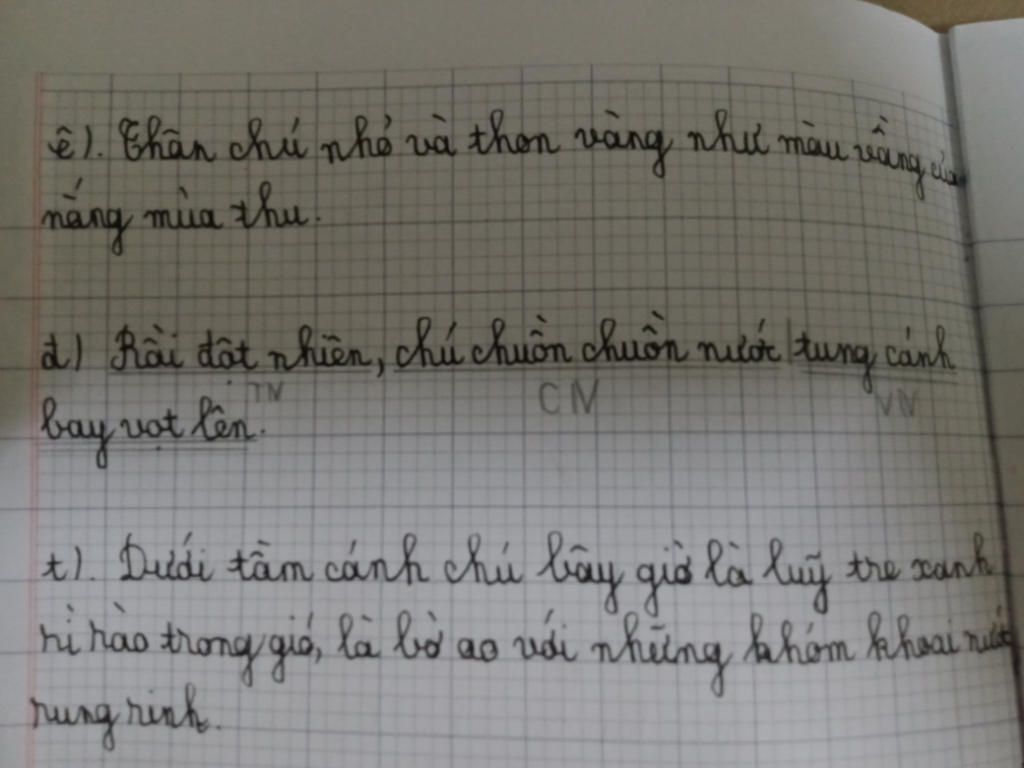 ê). Thân chú nhỏ và thon vàng như màu vàng của
nắng mùa thu.
d) Rồi đột nhiên, chú chuồn chuồn nước tung cánh
TN CN VN
bay vọt lên.
t). Dưới tầm cánh chú bây giờ là luỹ tre xanh
rì rào trong gió, là bờ ao với những khóm khoai nước
rung rinh.